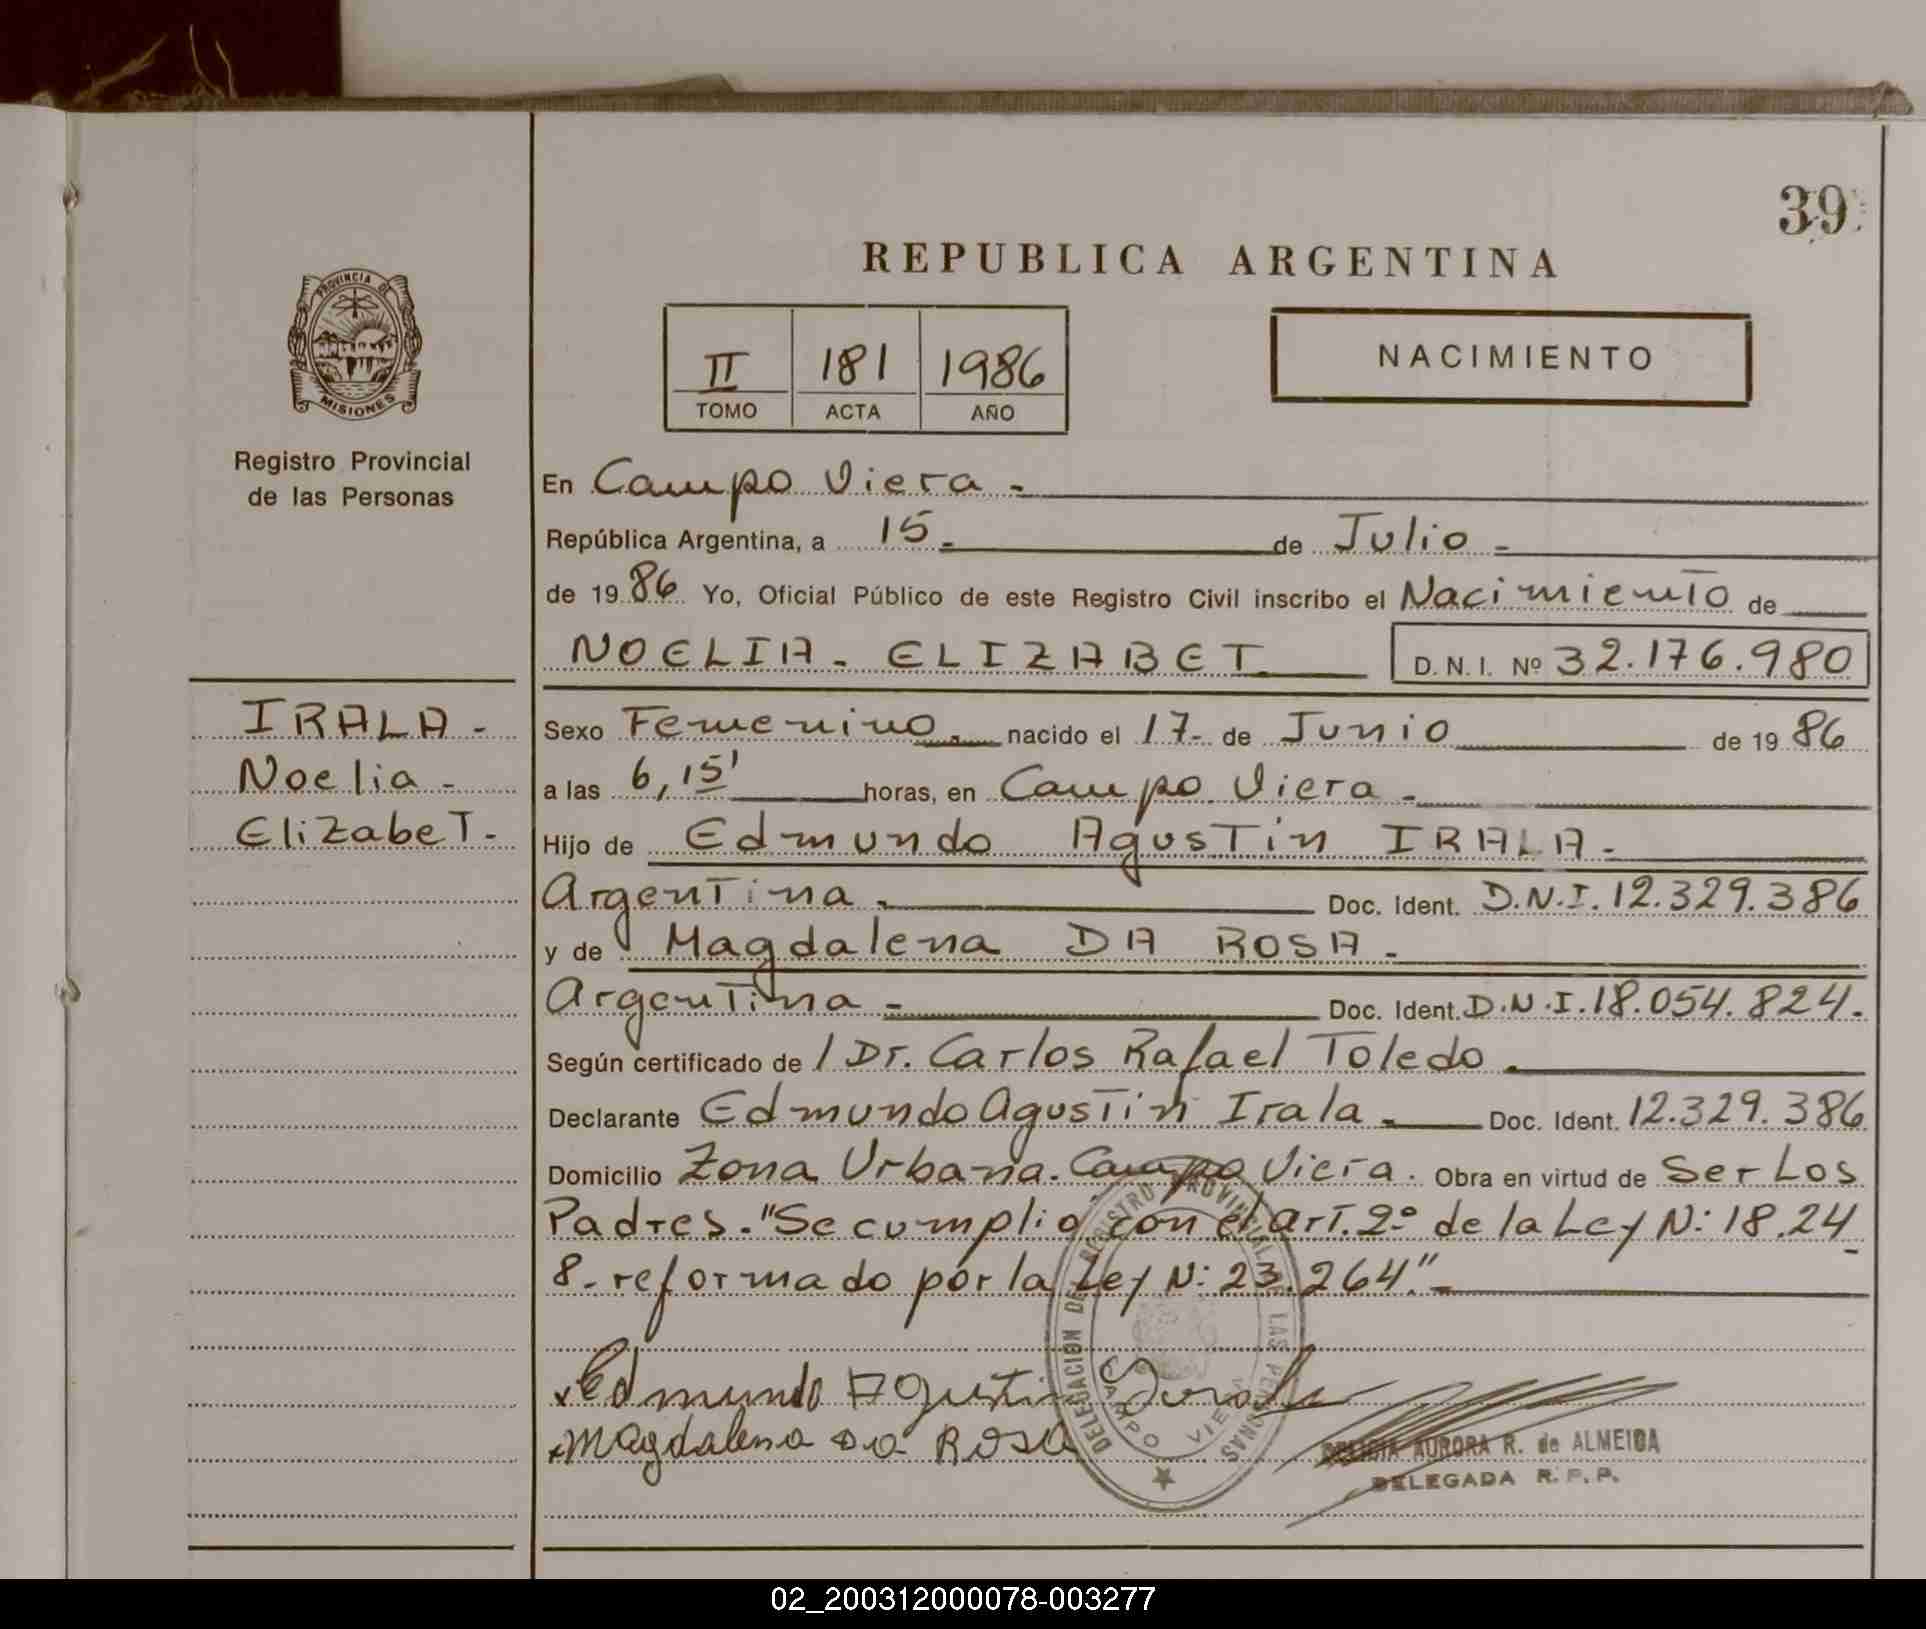 39
REPUBLICA ARGENTINA
PROVINCIA DE
MISIONES
Registro Provincial
de las Personas
II 181 1986
TOMO ACTA AÑO
NACIMIENTO
En Campo Viera -
República Argentina, a 15 - de Julio -
de 19 86 Yo, Oficial Público de este Registro Civil inscribo el Nacimiento de
NOELIA - ELIZABET D. N. I. Nº 32.176.980
IRALA -
Noelia -
ElizabeT -
Sexo Femenino - nacido el 17 - de Junio de 19 86
a las 6,15' horas, en Campo Viera -
Hijo de Edmundo AgusTin IRALA -
ArgenTina - Doc. Ident. D.N.I. 12.329.386
y de Magdalena DA ROSA -
ArgenTina - Doc. Ident. D.N.I. 18.054.824.
Según certificado de / Dr. Carlos Rafael Toledo .
Declarante Edmundo AgusTin Irala - Doc. Ident. 12.329.386
Domicilio Zona Urbana. Campo Viera. Obra en virtud de Ser Los
Padres. "Se cumplio con el art. 2º de la Ley N: 18.24
8 - reformado por la Ley N: 23.264." -
Edmundo Agustin Irala
Magdalena Da Rosa
DELEGACION DEL REGISTRO PROVINCIAL DE LAS PERSONAS
CAMPO VIERA
AURORA R. de ALMEIDA
DELEGADA R. P. P.
02_200312000078-003277